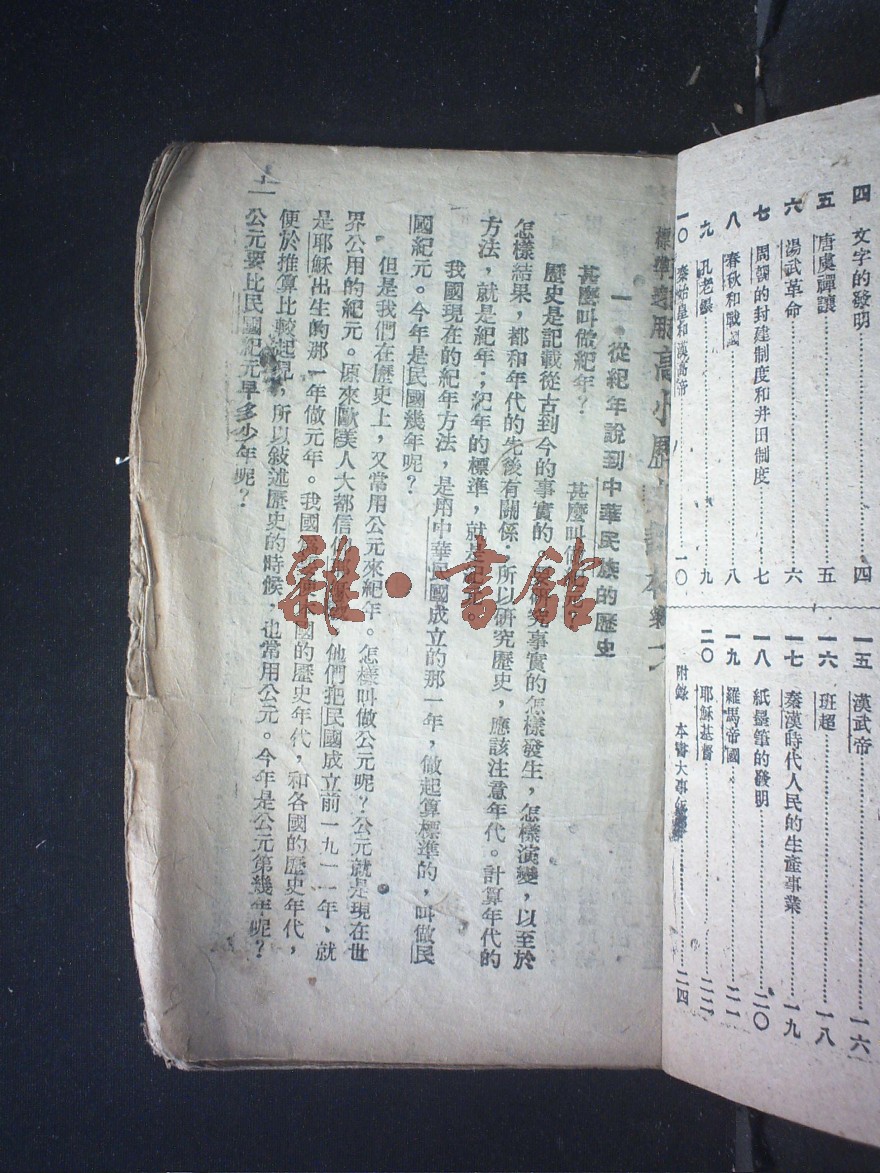 四 文字的發明 四
五 唐虞禪讓 五
六 湯武革命 六
七 周朝的封建制度和井田制度 七
八 春秋和戰國 八
九 孔老墨 九
一〇 秦始皇和漢高帝 一〇
一五 漢武帝 一六
一六 班超 一八
一七 秦漢時代人民的生產事業 一九
一八 紙墨筆的發明 二〇
一九 羅馬帝國 二一
二〇 耶穌基督 二二
附錄 本書大事年 二四
標準適用高小歷史課本
一 從紀年說到中華民族的歷史
甚麼叫做紀年? 甚麼叫做
歷史是記載從古到今的事實的。要研究事實的怎樣發生,怎樣演變,以至於
怎樣結果,都和年代的先後有關係,所以研究歷史,應該注意年代。計算年代的
方法,就是紀年;紀年的標準,就是紀元。
我國現在的紀年方法,是用中華民國成立的那一年,做起算標準的,叫做民
國紀元。今年是民國幾年呢?
但是我們在歷史上,又常用公元來紀年。怎樣叫做公元呢?公元就是現在世
界公用的紀元。原來歐美人大都信仰,他們把民國成立前一九一一年、就
是耶穌出生的那一年做元年。我國國的歷史年代,和各國的歷史年代,
便於推算比較起見,所以敍述歷史的時候,也常用公元。今年是公元第幾年呢?
公元要比民國紀元早多少年呢?
雜·書館